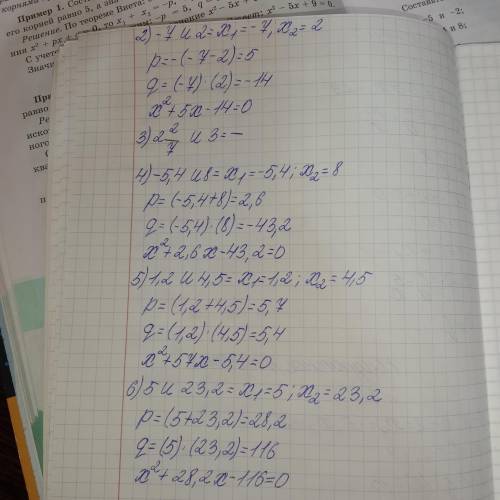 Пример 1. Соста
его корней равно 5, а зна
Решение. По теореме Виета: x₁ + x₂ = -p,
ния x² + px +
С учето
x² - 5x + 9 = 0.
Составьте
-5 и -2;
4 и 8;
2) -7 и 2 = x₁ = -7, x₂ = 2
p = -(-7-2) = 5
q = (-7) · (2) = -14
x² + 5x - 14 = 0
3) 2 2/7 и 3 = —
4) -5,4 и 8 = x₁ = -5,4 ; x₂ = 8
p = (-5,4+8) = 2,6
q = (-5,4) · (8) = -43,2
x² + 2,6x - 43,2 = 0
5) 1,2 и 4,5 = x₁ = 1,2 ; x₂ = 4,5
p = (1,2+4,5) = 5,7
q = (1,2) · (4,5) = 5,4
x² + 57x - 5,4 = 0
6) 5 и 23,2 = x₁ = 5 ; x₂ = 23,2
p = (5+23,2) = 28,2
q = (5) · (23,2) = 116
x² + 28,2x - 116 = 0